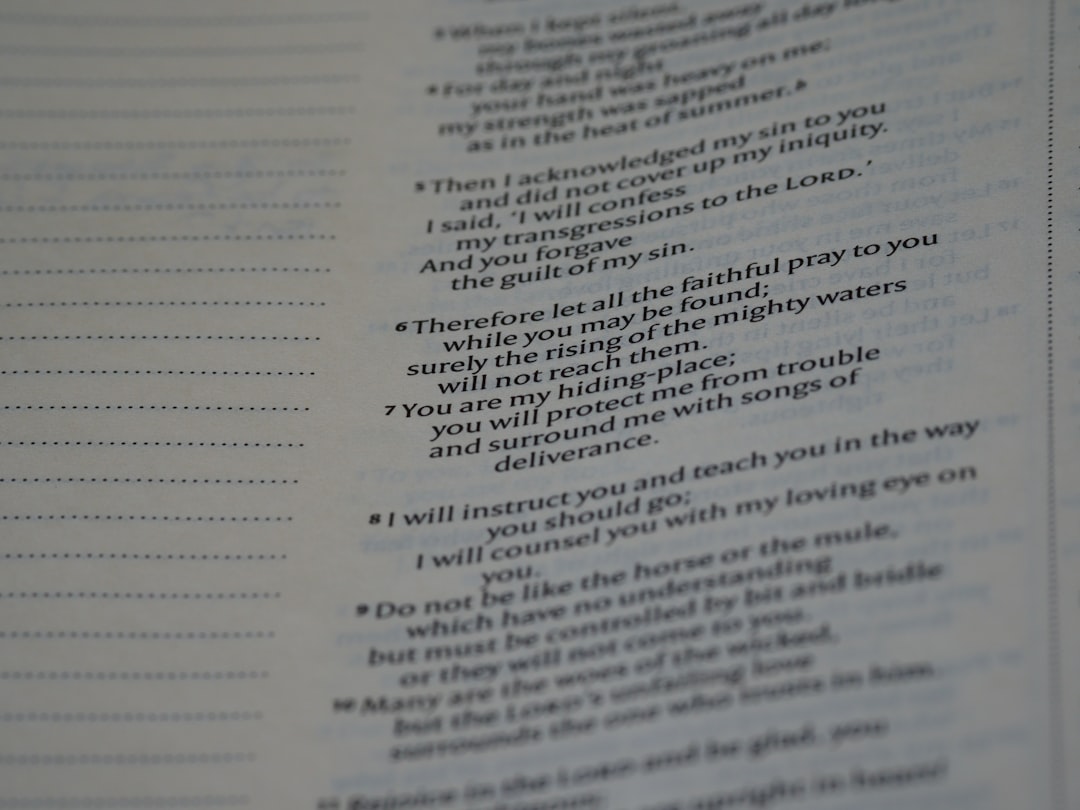 3 When I kept silent,
my bones wasted away
through my groaning all day long.
4 For day and night
your hand was heavy on me;
my strength was sapped
as in the heat of summer.b
5 Then I acknowledged my sin to you
and did not cover up my iniquity.
I said, ‘I will confess
my transgressions to the LORD.’
And you forgave
the guilt of my sin.
6 Therefore let all the faithful pray to you
while you may be found;
surely the rising of the mighty waters
will not reach them.
7 You are my hiding-place;
you will protect me from trouble
and surround me with songs of
deliverance.
8 I will instruct you and teach you in the way
you should go;
I will counsel you with my loving eye on
you.
9 Do not be like the horse or the mule,
which have no understanding
but must be controlled by bit and bridle
or they will not come to you.
10 Many are the woes of the wicked,
but the LORD’s unfailing love
surrounds the one who trusts in him.
11 Rejoice in the LORD and be glad, you
upright in heart!